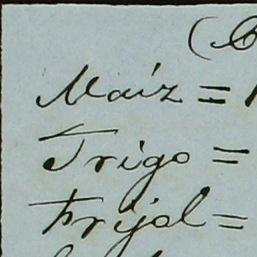 Maíz =
Trigo =
Frijol =